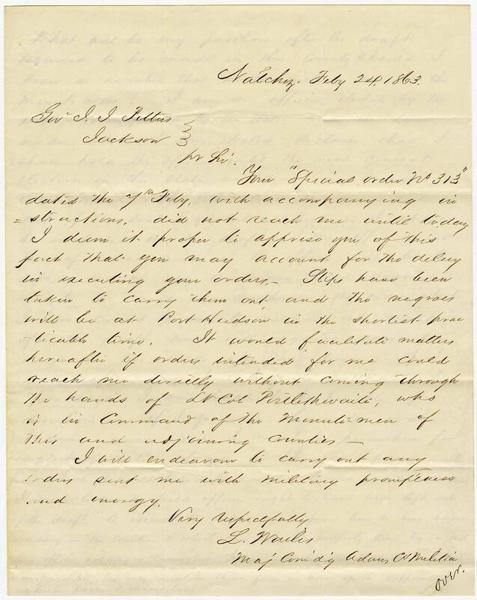 Natchez Feby 24, 1863.
Gov J. J. Pettus
Jackson
Dr Sir.
Your "Special order No 313"
dated the 7th Feby, with accompanying in
=structions, did not reach me until today
I deem it proper to apprise you of this
fact that you may account for the delay
in executing your orders - Steps have been
taken to carry them out and the negroes
will be at Port Hudson in the shortest prac
ticable time. It would facilitate matters
hereafter if orders intended for me could
reach me directly without coming through
the hands of Lt Col Postlethwaite, who
is in Command of the Minute men of
this and adjoining Counties -
I will endeavour to carry out any
orders sent me with military promptness
and energy.
Very respectfully
L.
Maj Comdg Adams Co Militia
over.